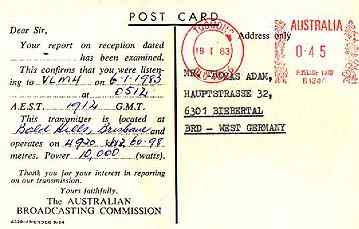 POST CARD
Dear Sir,
Your report on reception dated
has been examined.
This confirms that you were listen-
ing to VLM4 on 6.1.1983
at 0512
A.E.S.T. 1912 G.M.T.
This transmitter is located at
Bald Hills, Brisbane and
operates on 4920 60.98
metres. Power 10,000 (watts).
Thank you for your interest in reporting
on our transmission.
Yours faithfully,
The AUSTRALIAN
BROADCASTING COMMISSION
Address only
19 1 83
AUSTRALIA
0·45
ADAM,
HAUPTSTRASSE 32,
6301 BIEBERTAL
BRD - WEST GERMANY